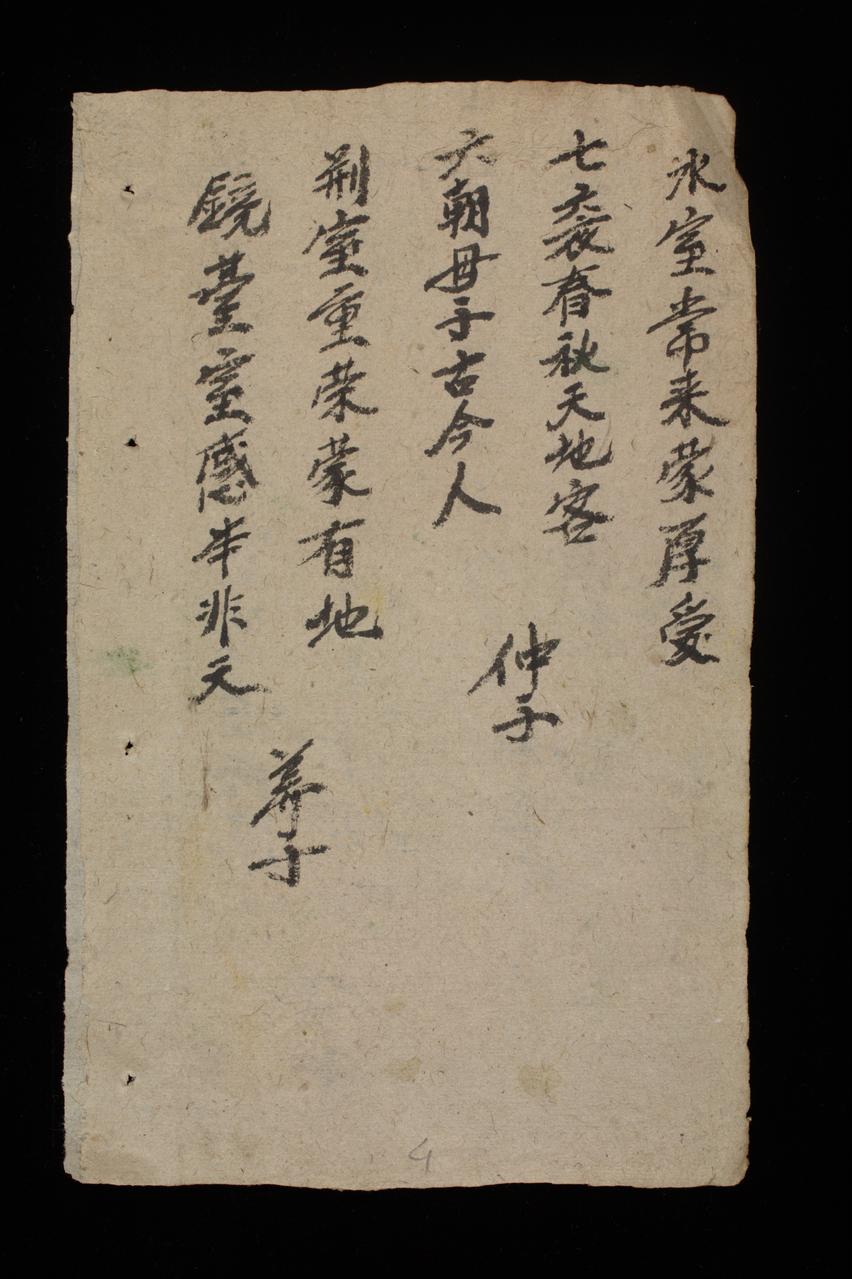 氷室常来蒙厚受
七袠春秋天地客
六朝母子古今人
仲子
荆室重荣蒙有地
鏡臺室感半非天
养子
4